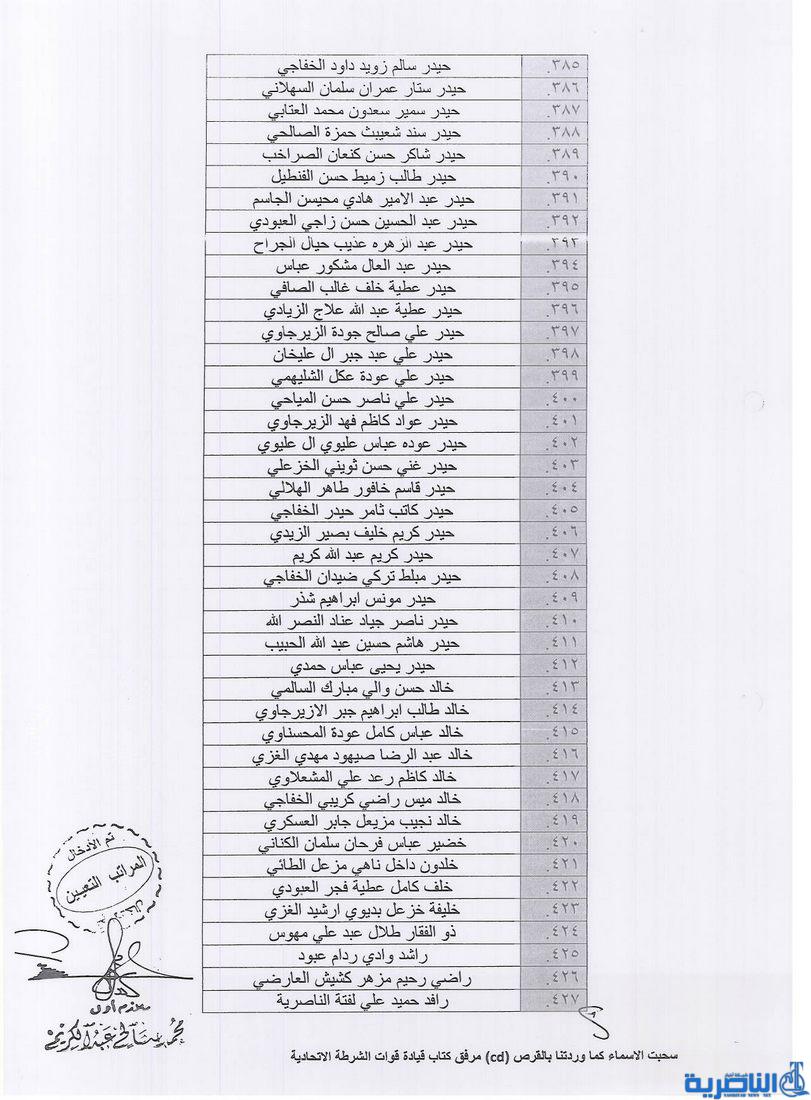 ٣٨٥. حيدر سالم زويد داود الخفاجي
٣٨٦. حيدر ستار عمران سلمان السهلاني
٣٨٧. حيدر سمير سعدون محمد العتابي
٣٨٨. حيدر سند شعيبث حمزة الصالحي
٣٨٩. حيدر شاكر حسن كنعان الصراخب
٣٩٠. حيدر طالب زميط حسن الفنطيل
٣٩١. حيدر عبد الامير هادي محيسن الجاسم
٣٩٢. حيدر عبد الحسين حسن زاجي العبودي
٣٩٣. حيدر عبد الزهره عذيب حيال الجراح
٣٩٤. حيدر عبد العال مشكور عباس
٣٩٥. حيدر عطية خلف غالب الصافي
٣٩٦. حيدر عطية عبد الله علاج الزيادي
٣٩٧. حيدر علي صالح جودة الزيرجاوي
٣٩٨. حيدر علي عبد جبر ال عليخان
٣٩٩. حيدر علي عودة عكل الشليهمي
٤٠٠. حيدر علي ناصر حسن المياحي
٤٠١. حيدر عواد كاظم فهد الزيرجاوي
٤٠٢. حيدر عوده عباس عليوي ال عليوي
٤٠٣. حيدر غني حسن ثويني الخزعلي
٤٠٤. حيدر قاسم خافور طاهر الهلالي
٤٠٥. حيدر كاتب ثامر حيدر الخفاجي
٤٠٦. حيدر كريم خليف بصير الزيدي
٤٠٧. حيدر كريم عبد الله كريم
٤٠٨. حيدر مبلط تركي ضيدان الخفاجي
٤٠٩. حيدر مونس ابراهيم شذر
٤١٠. حيدر ناصر جياد عناد النصر الله
٤١١. حيدر هاشم حسين عبد الله الحبيب
٤١٢. حيدر يحيى عباس حمدي
٤١٣. خالد حسن والي مبارك السالمي
٤١٤. خالد طالب ابراهيم جبر الازيرجاوي
٤١٥. خالد عباس كامل عودة المحسناوي
٤١٦. خالد عبد الرضا صيهود مهدي الغزي
٤١٧. خالد كاظم رعد علي المشعلاوي
٤١٨. خالد ميس راضي كريبي الخفاجي
٤١٩. خالد نجيب مزيعل جابر العسكري
٤٢٠. خضير عباس فرحان سلمان الكناني
٤٢١. خلدون داخل ناهي مزعل الطائي
٤٢٢. خلف كامل عطية فجر العبودي
٤٢٣. خليفة خزعل بديوي ارشيد الغزي
٤٢٤. ذو الفقار طلال عبد علي مهوس
٤٢٥. راشد وادي ردام عبود
٤٢٦. راضي رحيم مزهر كشيش العارضي
٤٢٧. رافد حميد علي لفتة الناصرية
تم الأدخال
المراتب التعيين
ملازم أول
محمد صالح عبد الكريم
سحبت الاسماء كما وردتنا بالقرص (cd) مرفق كتاب قيادة قوات الشرطة الاتحادية
شبكة اخبار
الناصرية
NASIRIYAH NEWS NET